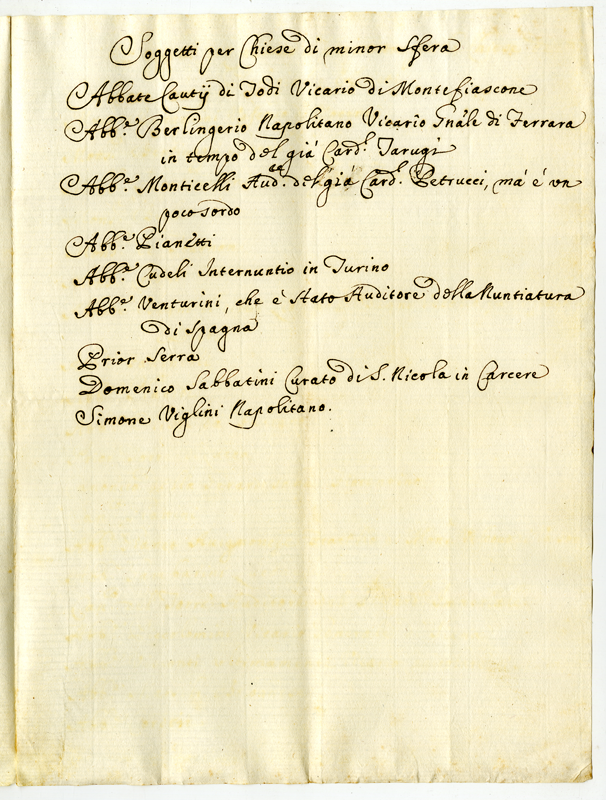 Soggetti per Chiese di minor sfera
Abbate Cautij di Todi Vicario di Montefiascone
Abb.e Berlingerio Napolitano Vicario Gnãle di Ferrara
in tempo del già Card.l Tarugi
Abb.e Monticelli Aud.re del già Card.l Petrucci, mà è un
poco sordo
Abb.e Pianetti
Abb.e Cudeli Internuntio in Turino
Abb.e Venturini, che è stato Auditore della Nuntiatura
di Spagna
Prior Serra
Domenico Sabbatini Curato di S. Nicola in Carcere
Simone Viglini Napolitano.